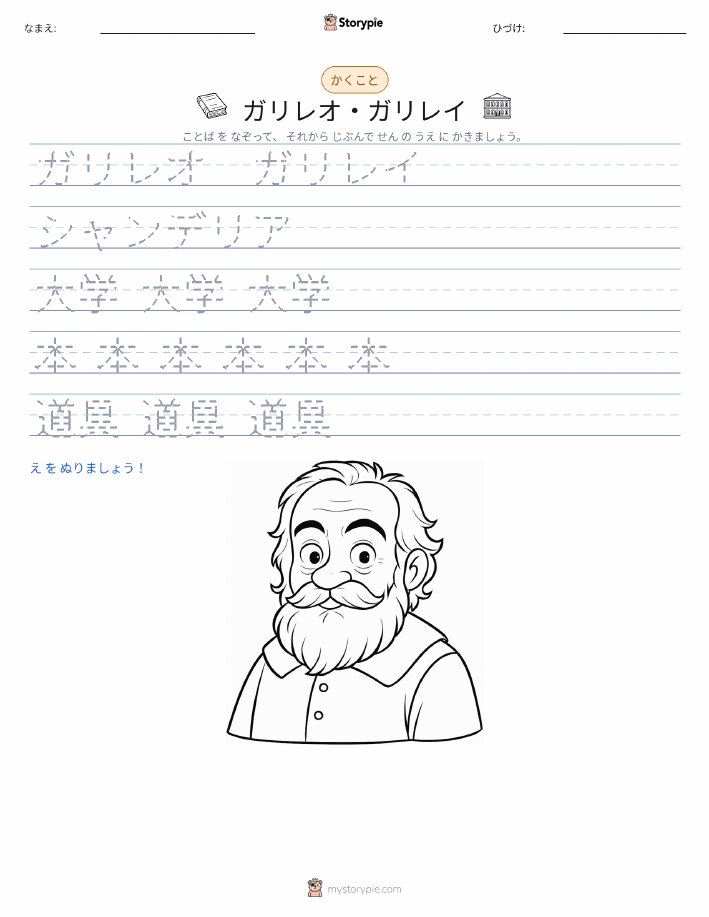 なまえ:
Storypie
ひづけ:
かくこと
ガリレオ・ガリレイ
ことば を なぞって、 それから じぶんで せん の うえ に かきましょう。
ガリレオ ガリレイ
シャンデリア
大学 大学 大学
本 本 本 本 本 本
道具 道具 道具
え を ぬりましょう！
mystorypie.com